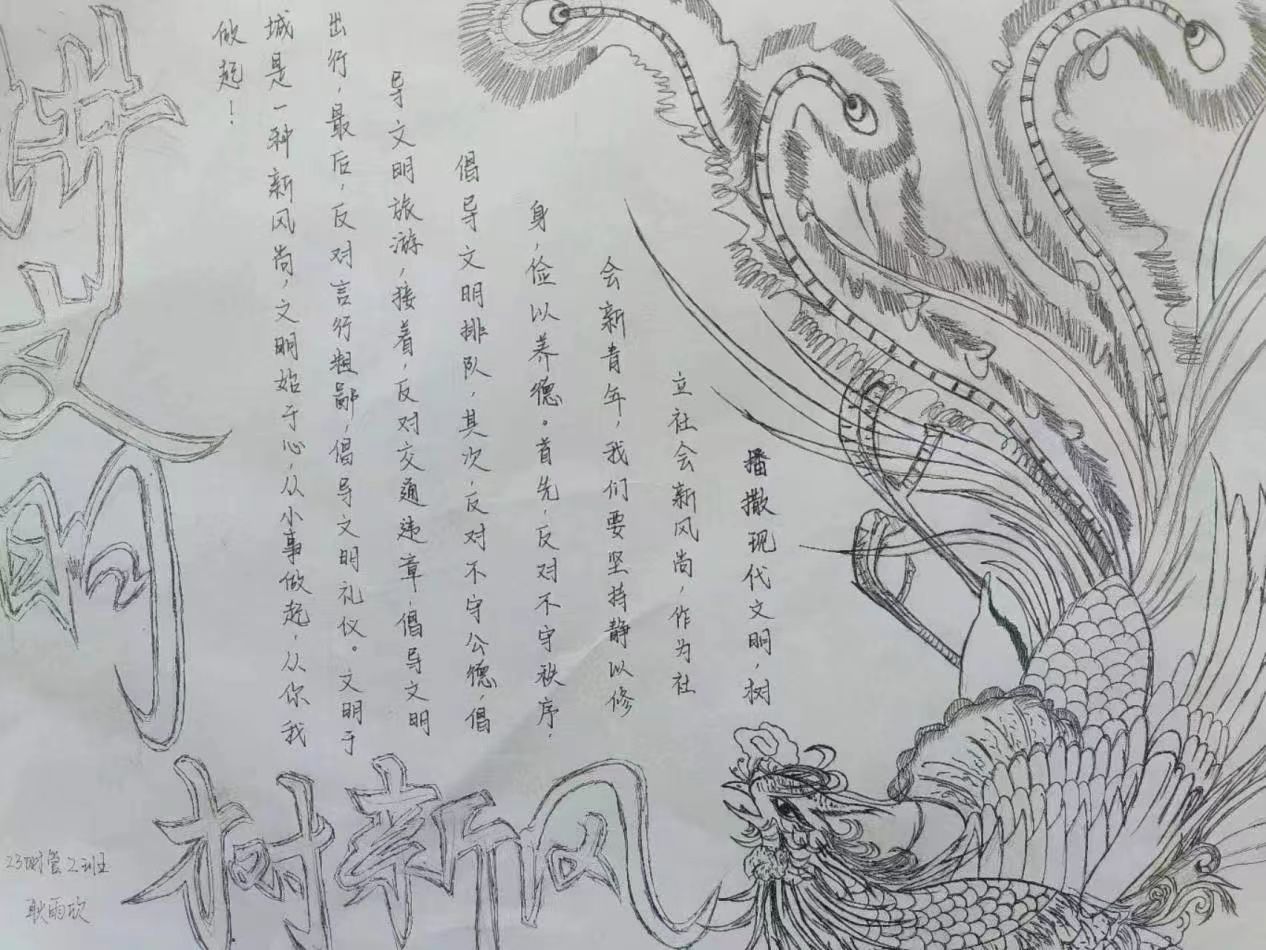 讲文明
树新风
播撒现代文明，树
立社会新风尚，作为社
会新青年，我们要坚持静以修
身，俭以养德。首先，反对不守秩序，
倡导文明排队，其次，反对不守公德，倡
导文明旅游，接着，反对交通违章，倡导文明
出行，最后，反对言行粗鄙，倡导文明礼仪。文明于
城是一种新风尚，文明始于心，从小事做起，从你我
做起！
23财管2班
耿雨欣